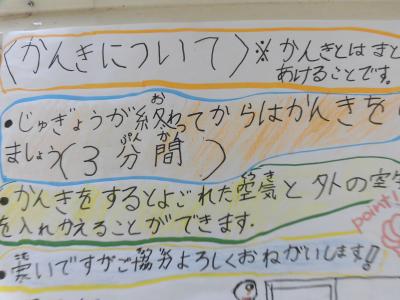 〈かんきについて〉※かんきとはまど
あけることです。
お
•じゅぎょうが終わってからはかんきを
ぷん かん
ましょう(3分間)
くう き
•かんきをするとよごれた空気と外の空
を入れかえることができます.
point!
•寒いですがご協力よろしくおねがいします!!